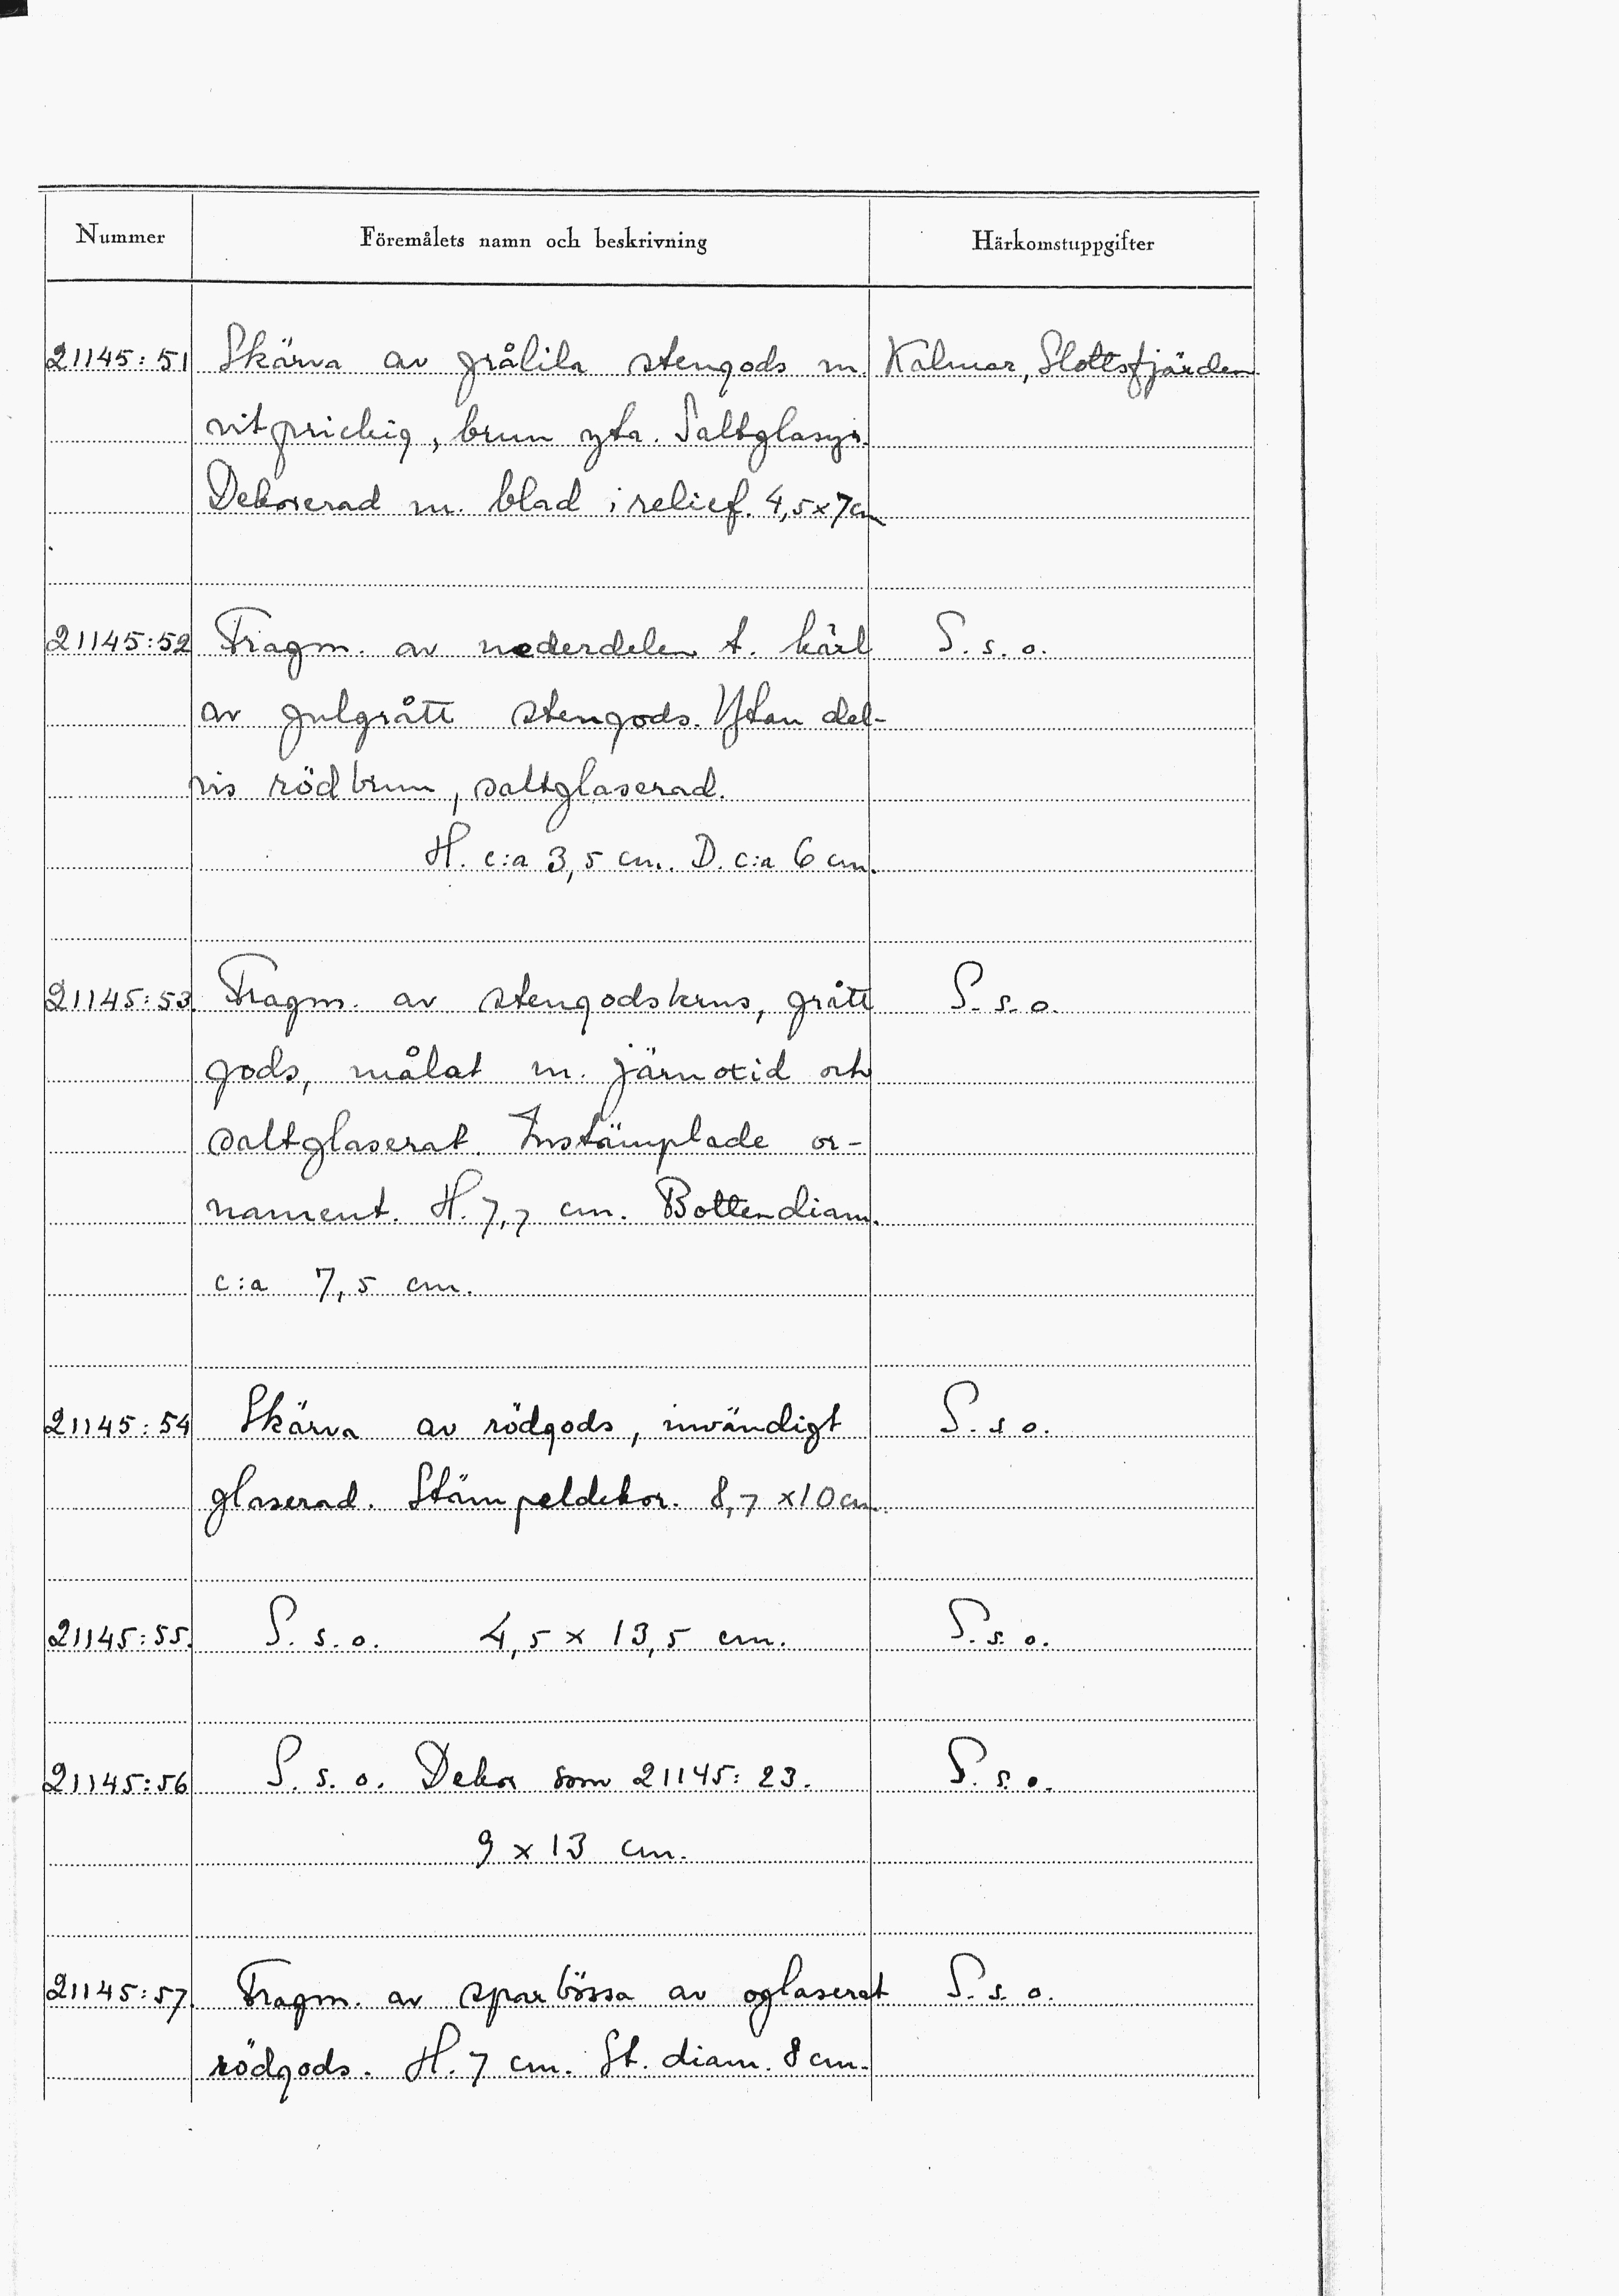 Nummer Föremålets namn och beskrivning Härkomstuppgifter
21145:51 Skärva av grålila stengods m. Kalmar, Slottsfjärden
vitprickig, brun yta. Saltglasyr.
Dekorerad m. blad i relief. 4,5x7cm
21145:52 Fragm. av nederdelen t. kärl S.s.o.
av gulgrått stengods. Ytan del-
vis rödbrun, saltglaserad.
H. c:a 3,5 cm. D. c:a 6 cm.
21145:53. Fragm. av stengodskrus, grått S.s.o.
gods, målat m. järnoxid och
saltglaserat. Instämplade or-
nament. H. 7,7 cm. Bottendiam.
c:a 7,5 cm.
21145:54 Skärva av rödgods, invändigt S.s.o.
glaserad. Stämpeldekor. 8,7 x10cm.
21145:55. S.s.o. 4,5 x 13,5 cm. S.s.o.
21145:56 S.s.o. Dekor som 21145:23. S.s.o.
9 x 13 cm.
21145:57. Fragm. av sparbössa av oglaserat S.s.o.
rödgods. H. 7 cm. St. diam. 8cm.